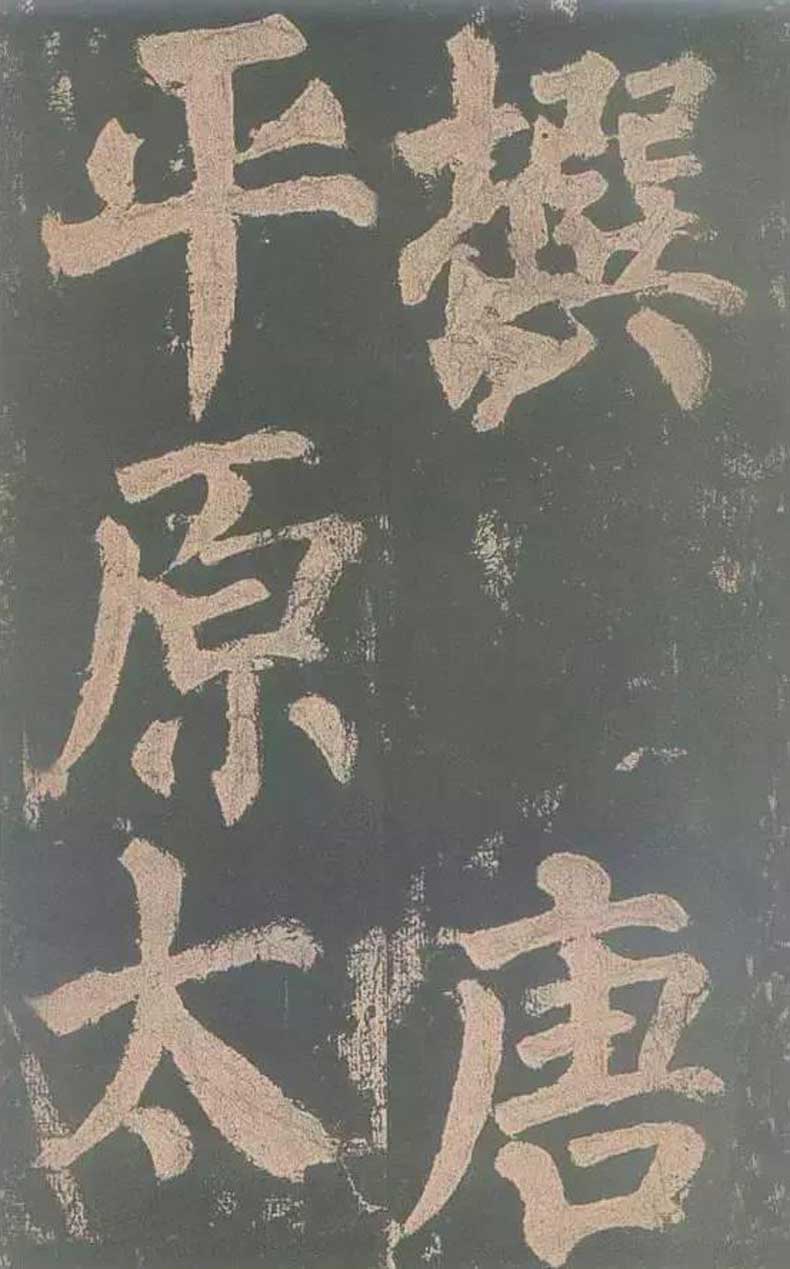 撰
唐
平原太